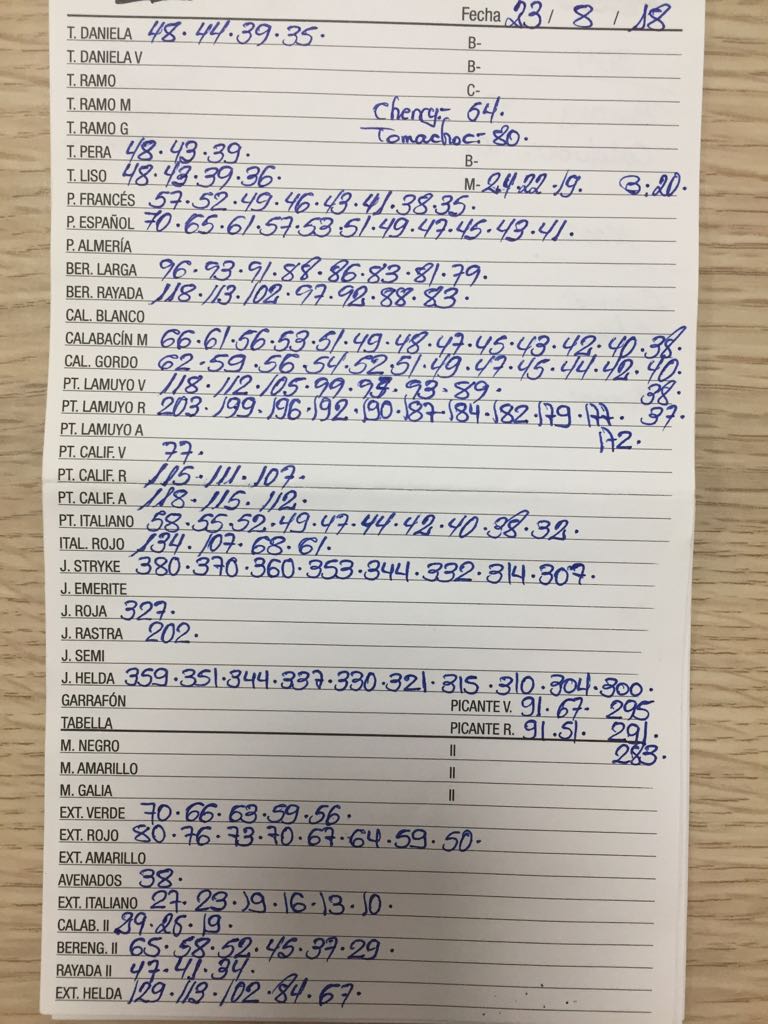 Fecha 23 / 8 / 18
T. DANELA 48. 44. 39. 35. B-
T. DANIELA V B-
T. RAMO C-
T. RAMO M Cherry- 64.
T. RAMO G Tomachoc- 80.
T. PERA 48. 43. 39. B-
T. LISO 48. 43. 39. 36. M- 24. 22. 19. B: 20.
P. FRANCÉS 57. 52. 49. 46. 43. 41. 38. 35.
P. ESPAÑOL 70. 65. 61. 57. 53. 51. 49. 47. 45. 43. 41.
P. ALMERÍA
BER. LARGA 96. 93. 91. 88. 86. 83. 81. 79.
BER. RAYADA 118. 113. 102. 97. 92. 88. 83.
CAL. BLANCO
CALABACÍN M 66. 61. 56. 53. 51. 49. 48. 47. 45. 43. 42. 40. 38.
CAL. GORDO 62. 59. 56. 54. 52. 51. 49. 47. 45. 44. 42. 40.
PT. LAMUYO V 118. 112. 105. 99. 97. 93. 89. 38.
PT. LAMUYO R 203. 199. 196. 192. 190. 187. 184. 182. 179. 177. 37.
PT. LAMUYO A 172.
PT. CALIF. V 77.
PT. CALIF. R 115. 111. 107.
PT. CALIF. A 118. 115. 112.
PT. ITALIANO 58. 55. 52. 49. 47. 44. 42. 40. 38. 32.
ITAL. ROJO 134. 107. 68. 61.
J. STRYKE 380. 370. 360. 353. 344. 332. 314. 307.
J. EMERITE
J. ROJA 327.
J. RASTRA 202.
J. SEMI
J. HELDA 359. 351. 344. 337. 330. 321. 315. 310. 304. 300.
GARRAFÓN PICANTE V. 91. 67. 295
TABELLA PICANTE R. 91. 51. 291.
M. NEGRO II 283.
M. AMARILLO II
M. GALIA II
EXT. VERDE 70. 66. 63. 59. 56.
EXT. ROJO 80. 76. 73. 70. 67. 64. 59. 50.
EXT. AMARILLO
AVENADOS 38.
EXT. ITALIANO 27. 23. 19. 16. 13. 10.
CALAB. II 29. 25. 19.
BERENG. II 65. 58. 52. 45. 37. 29.
RAYADA II 47. 41. 34.
EXT. HELDA 129. 113. 102. 84. 67.